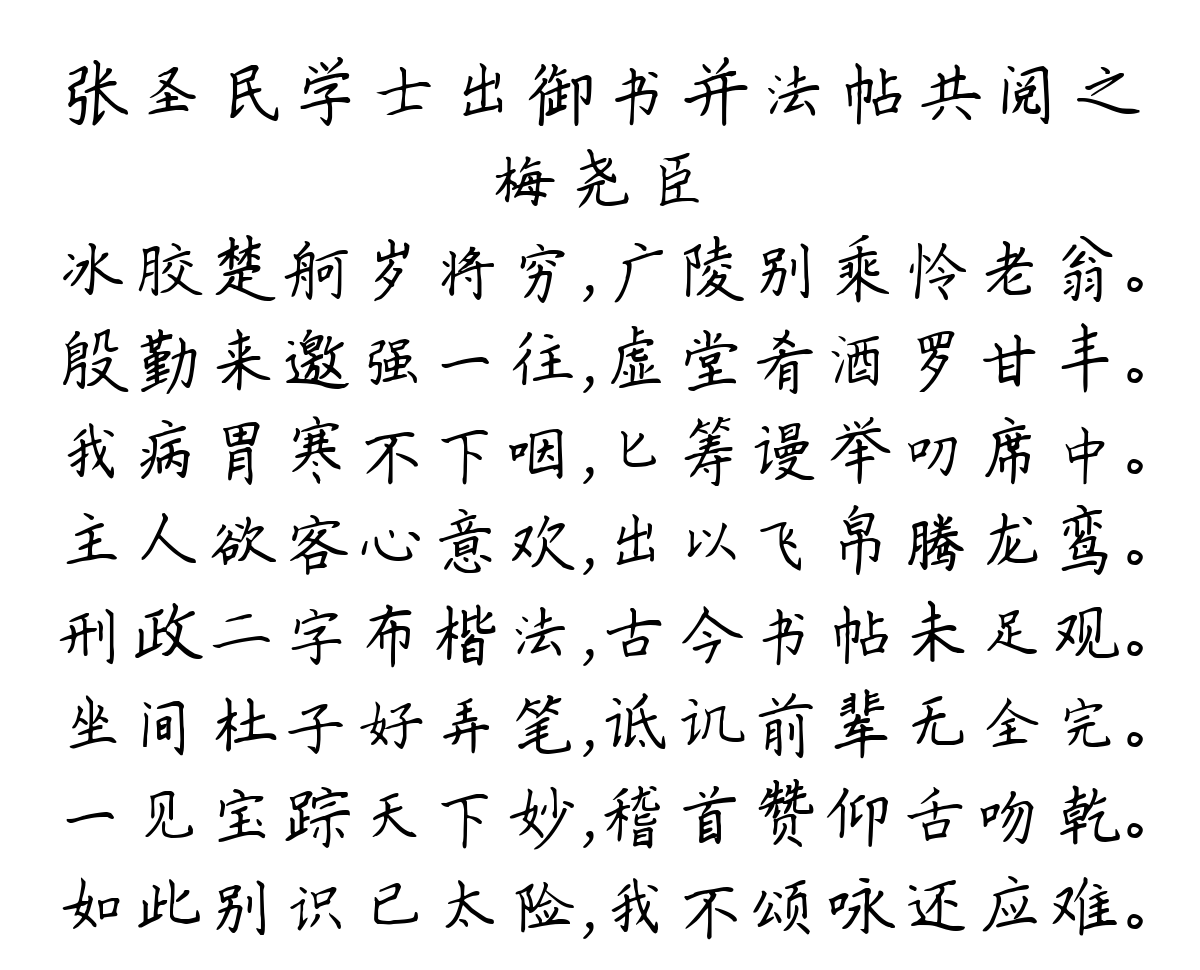 张圣民学士出御书并法帖共阅之
梅尧臣
冰胶楚舸岁将穷,广陵别乘怜老翁。
殷勤来邀强一往,虚堂肴酒罗甘丰。
我病胃寒不下咽,匕筹谩举叨席中。
主人欲客心意欢,出以飞帛腾龙鸾。
刑政二字布楷法,古今书帖未足观。
坐间杜子好弄笔,诋讥前辈无全完。
一见宝踪天下妙,稽首赞仰舌吻乾。
如此别识已太险,我不颂咏还应难。